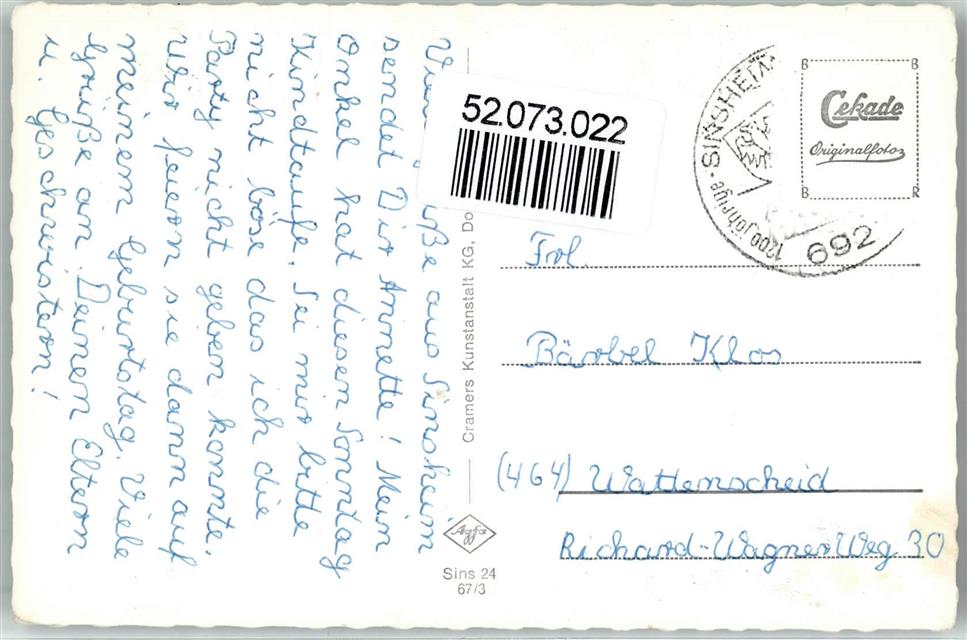 sendet Dir Annette! Mein
Onkel hat diesen Sonntag
Kindtaufe. Sei mir bitte
nicht böse das ich die
Party nicht geben konnte.
Wir feiern sie dann auf
meinem Geburtstag. Viele
Grüße an Deinen Eltern
u. Geschwistern!
aus Sinsheim
52.073.022
Cramers Kunstanstalt KG, Do
Agfa
Sins 24
67/3
1200jährige · SINSHEIM
692
B B
Cekade
Originalfoto
B R
Frl.
Bärbel Klos
(464) Wattenscheid
Richard-Wagner Weg 30